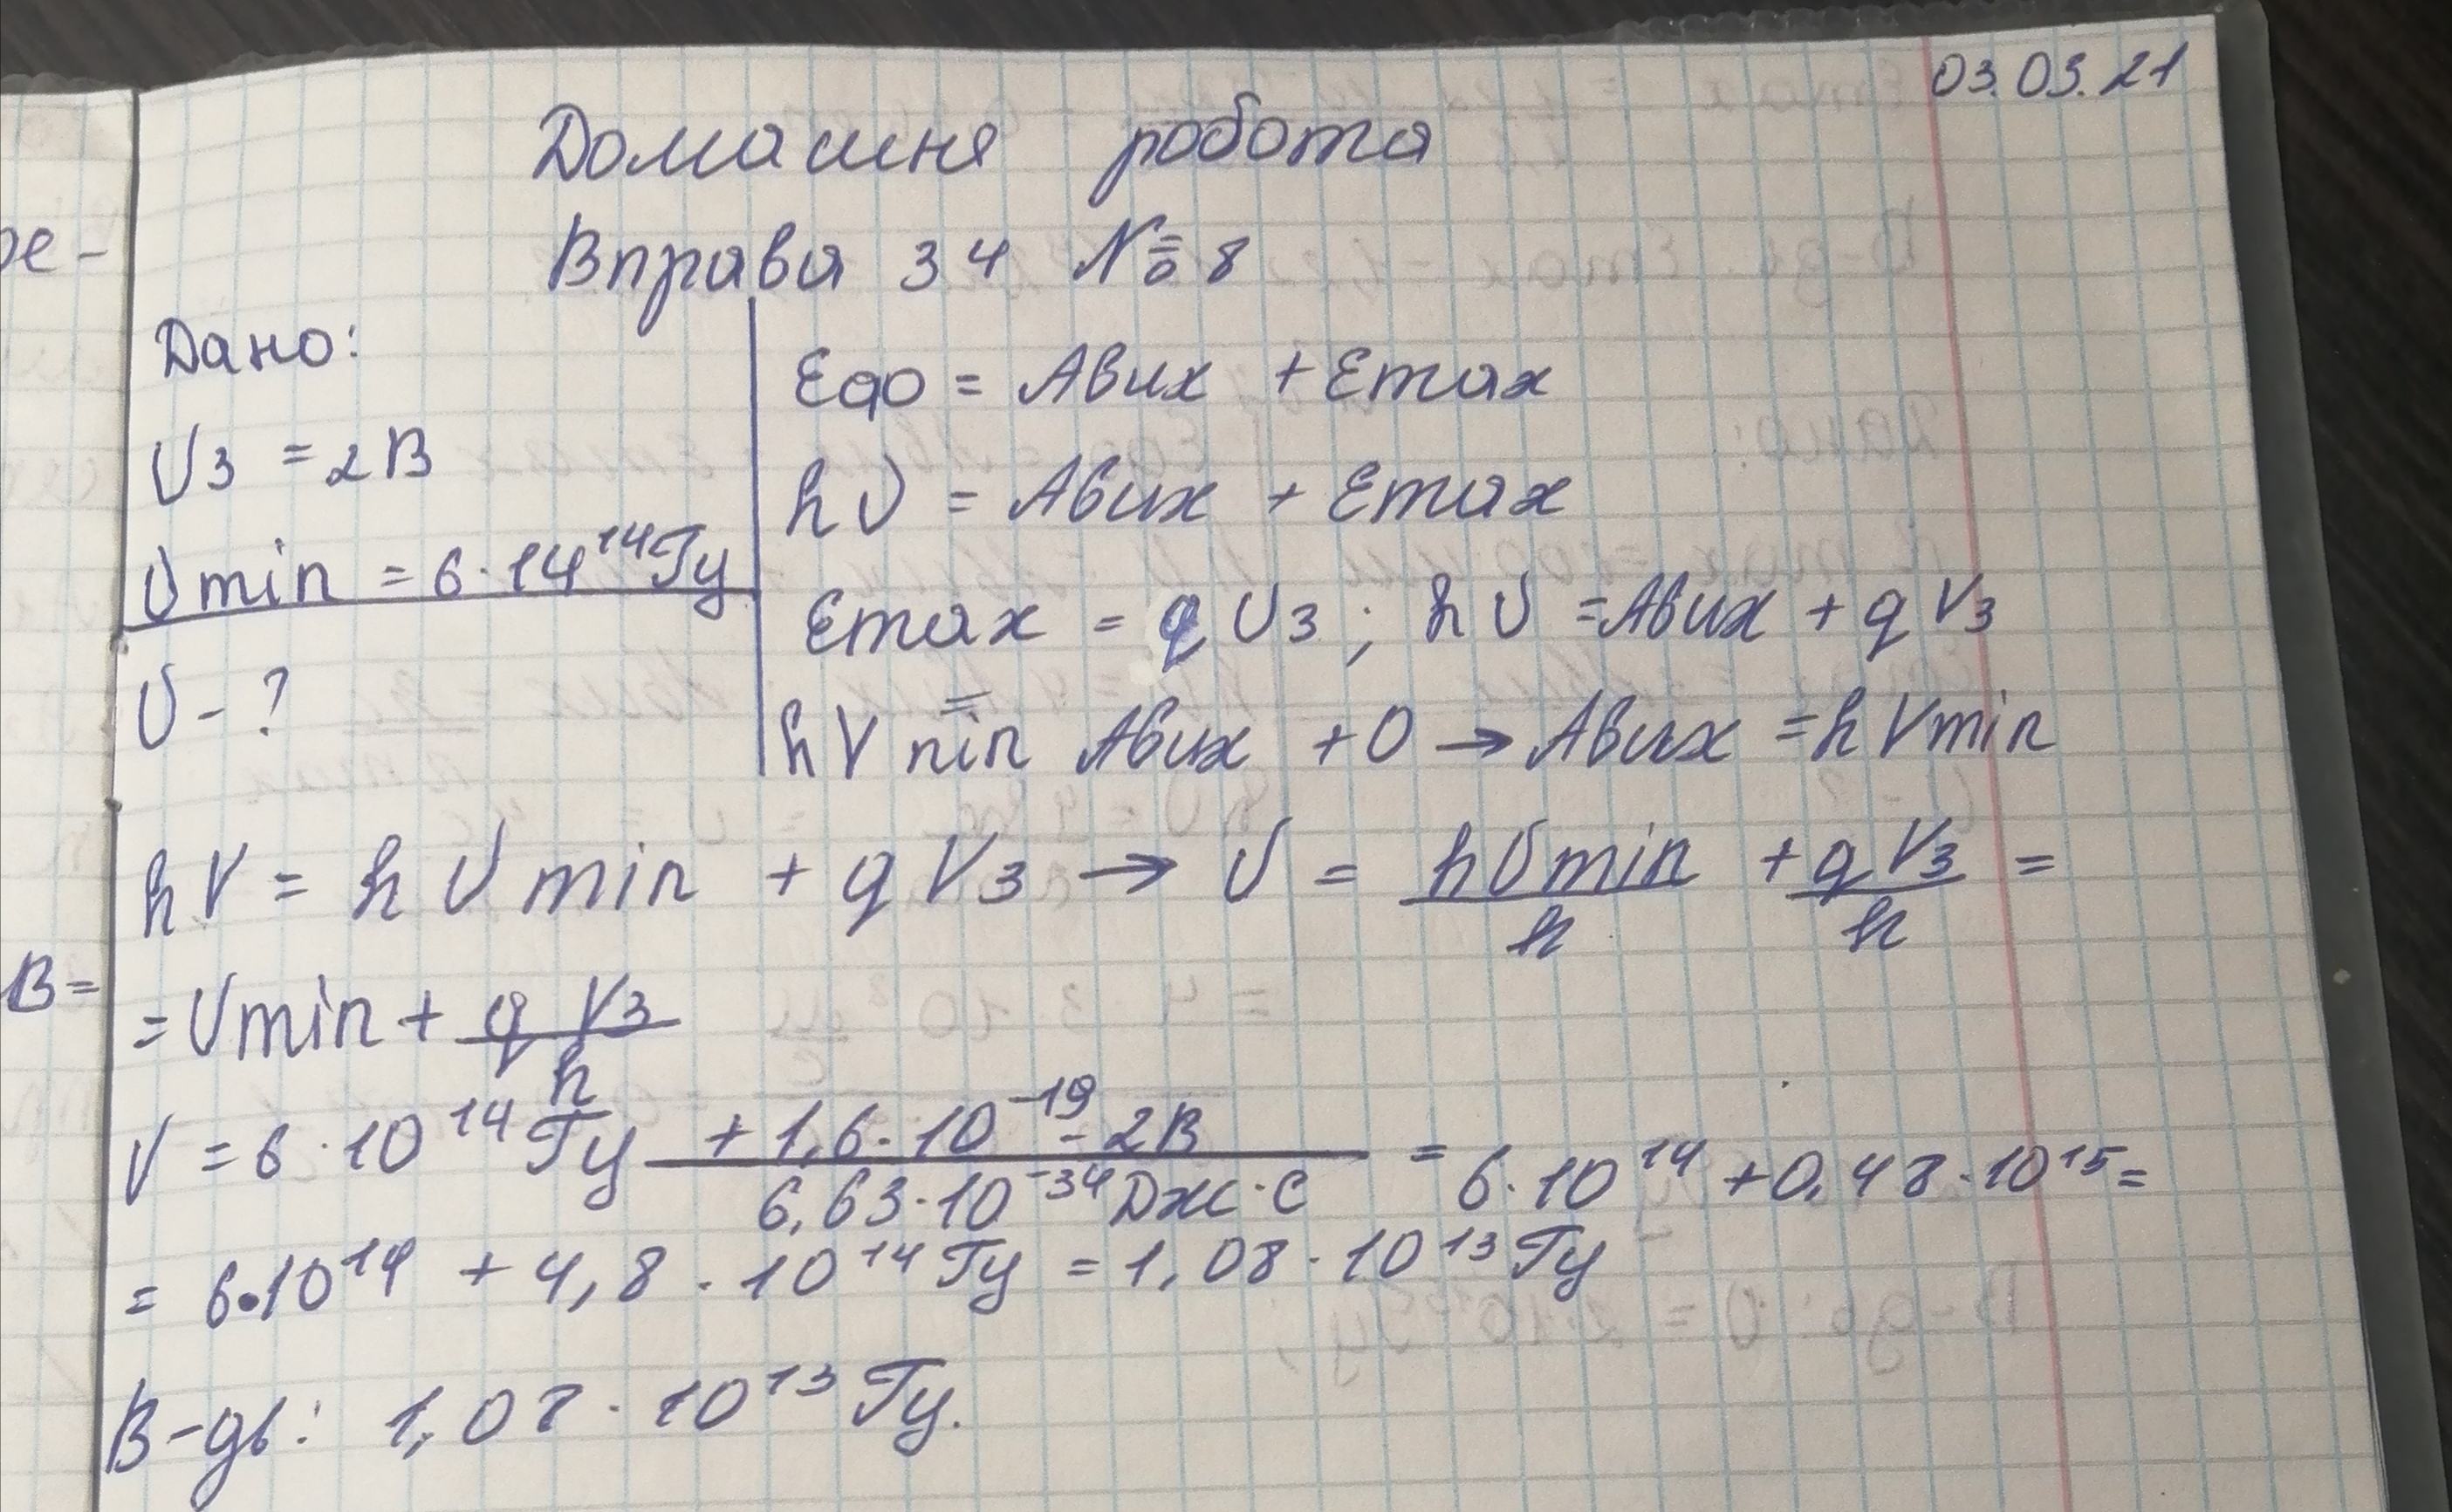 03.03.21
Домашня робота
Вправа 34 № 8
Дано:
U з = 2 В
υ min = 6 · 14¹⁴ Гц
υ - ?
Eфо = Aвих + Emax
hυ = Aвих + Emax
Emax = q U з ; hυ = Aвих + q V з
hV min = Aвих + 0 → Aвих = hVmin
hV = hυ min + q V з → υ = hυmin/h + q V з/h =
= υmin + q V з/h
V = 6 · 10¹⁴ Гц + 1,6 · 10⁻¹⁹ · 2В / 6,63 · 10⁻³⁴ Дж · с = 6 · 10¹⁴ + 0,48 · 10¹⁵ =
= 6 · 10¹⁴ + 4,8 · 10¹⁴ Гц = 1,08 · 10¹³ Гц
В-дь: 1,08 · 10¹³ Гц.
ре -
В =